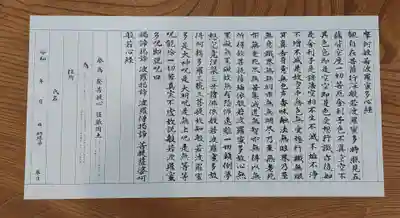 摩訶般若波羅蜜多心経
観自在菩薩行深般若波羅蜜多時照見五
蘊皆空度一切苦厄舎利子色不異空空不
異色色即是空空即是色受想行識亦復如
是舎利子是諸法空相不生不滅不垢不浄
不増不減是故空中無色無受想行識無眼
耳鼻舌身意無色声香味触法無眼界乃至
無意識界無無明亦無無明尽乃至無老死
亦無老死尽無苦集滅道無智亦無得以無
所得故菩提薩埵依般若波羅蜜多故心無
罣礙無罣礙故無有恐怖遠離一切顛倒夢
想究竟涅槃三世諸仏依般若波羅蜜多故
得阿耨多羅三藐三菩提故知般若波羅蜜
多是大神呪是大明呪是無上呪是無等等
呪能除一切苦真実不虚故説般若波羅蜜
多呪即説呪曰
羯諦羯諦 波羅羯諦 波羅僧羯諦 菩提薩婆訶
般若心経
奉為 發菩提心
為
住所
氏名
年 月 日